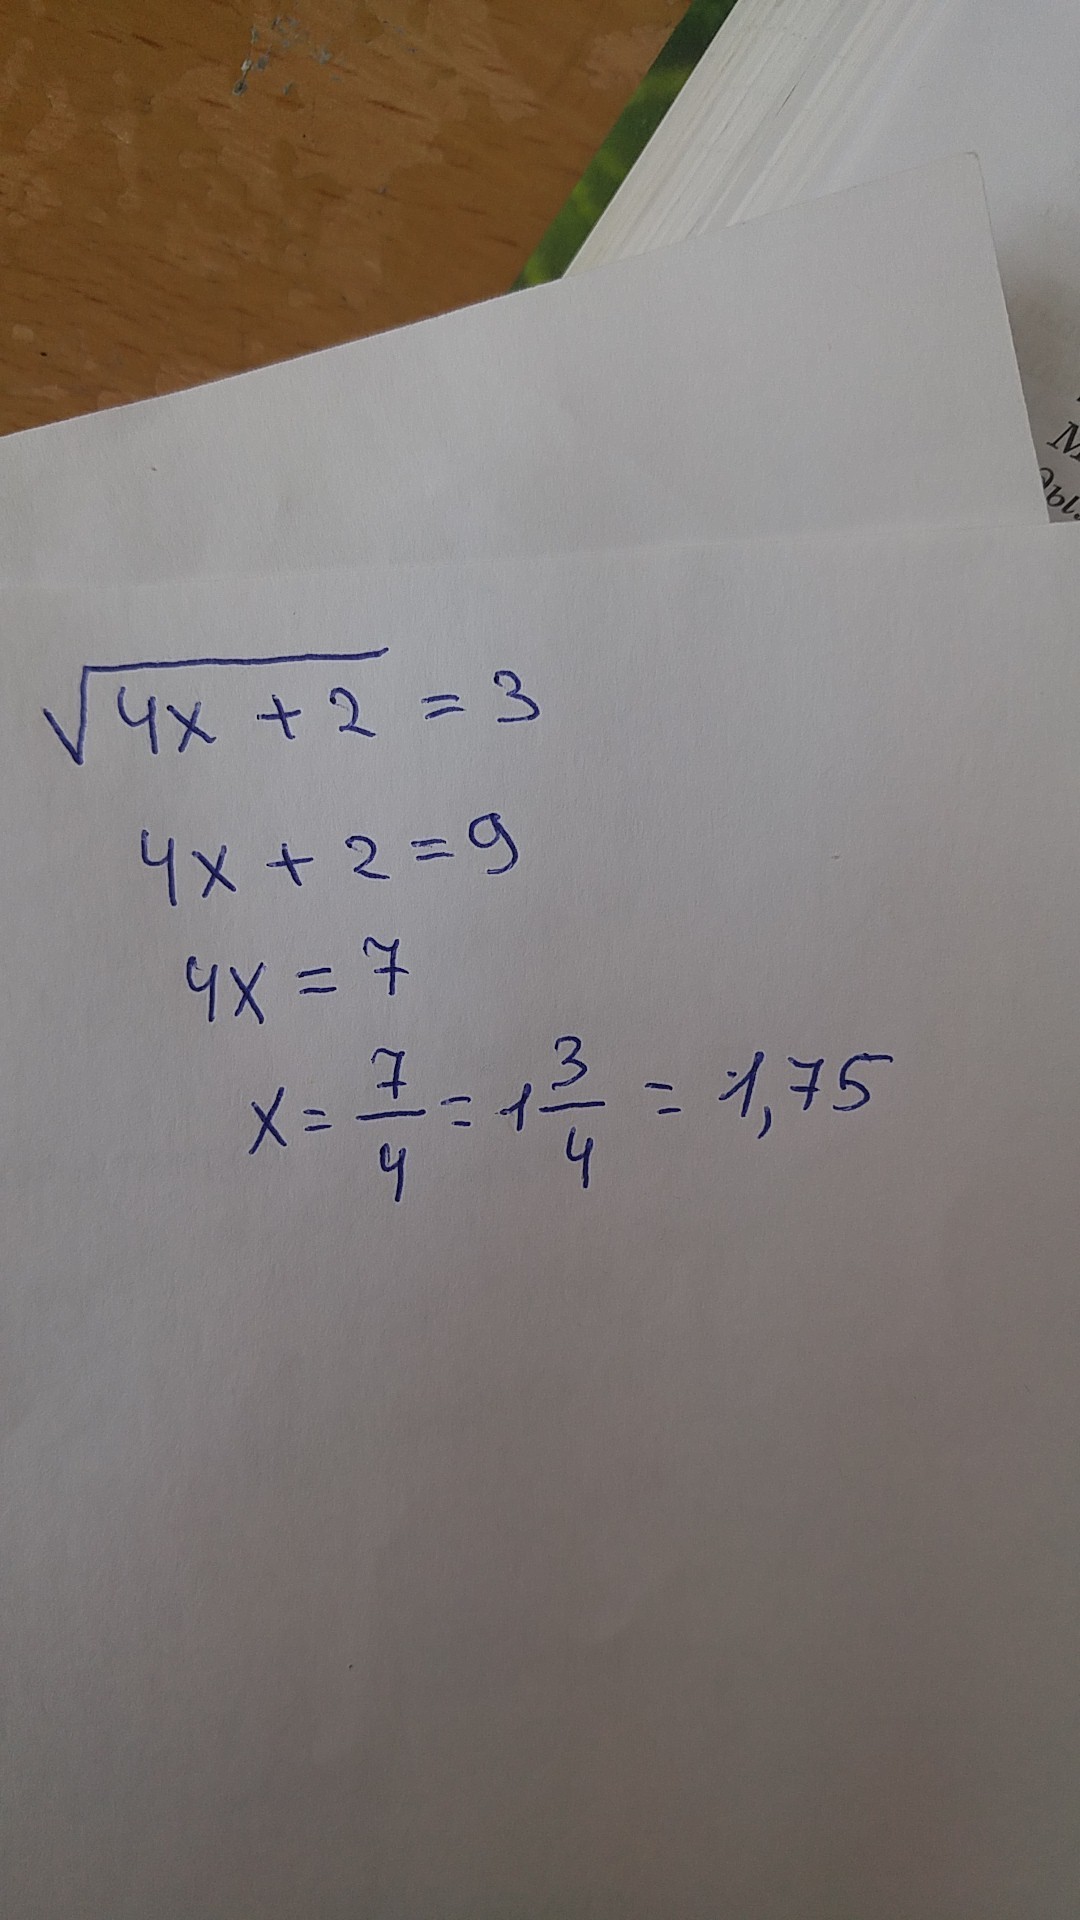 √4x + 2 = 3
4x + 2 = 9
4x = 7
x = 7/4 = 1 3/4 = 1,75